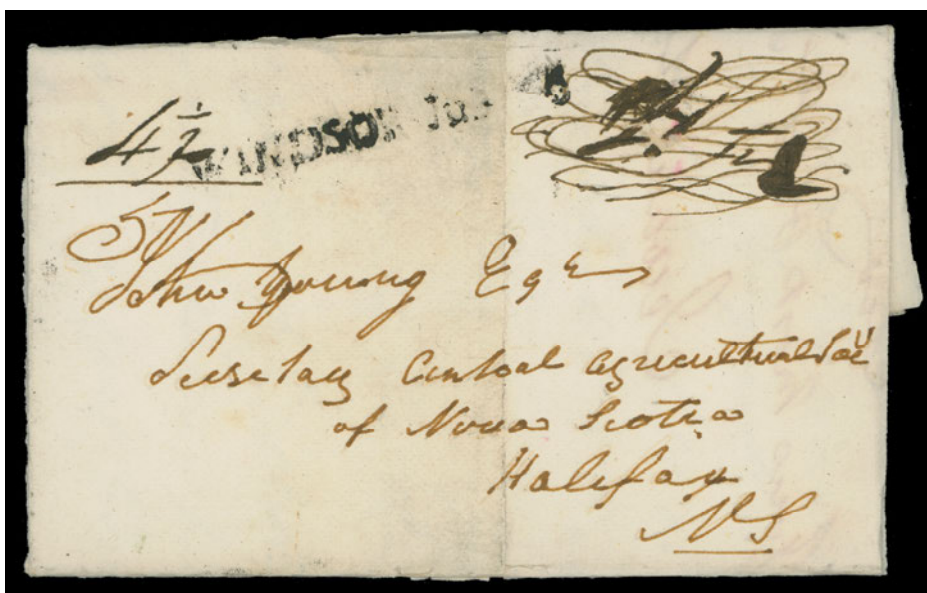 4½
WINDSOR
John Young Esqr
Secretary Central Agricultural Socy
of Nova Scotia
Halifax
NS